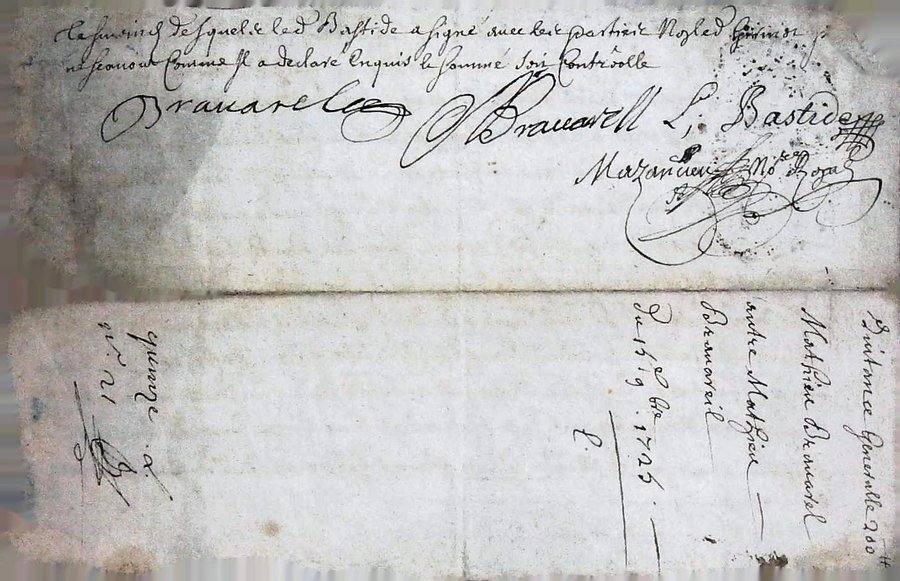 tesmoins desquels led Bastide a signé avec les parties Non led
ne scavoir comme il a declaré enquis le sommé soit controolle
Bravarel
Bravarell L, Bastide
Mazancieu No.re Royal
Quitance Generalle 200 tt
Mathieu Bravarel
autre Mathieu
Bravareil
du 15 9bre 1725.
quinze
n.o 21